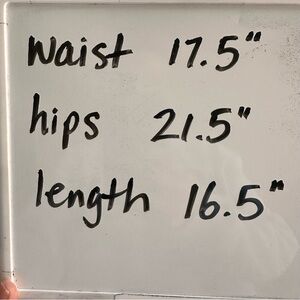 waist 17.5"
hips 21.5"
length 16.5"